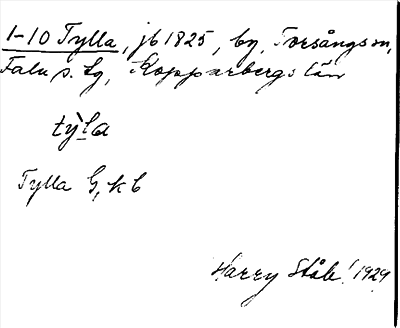 1-10 Tylla, jb 1825, by, Torsångs sn,
Falu s. lg, Kopparbergs län
ty̆la
Tylla G, k b
Harry Ståhl 1929